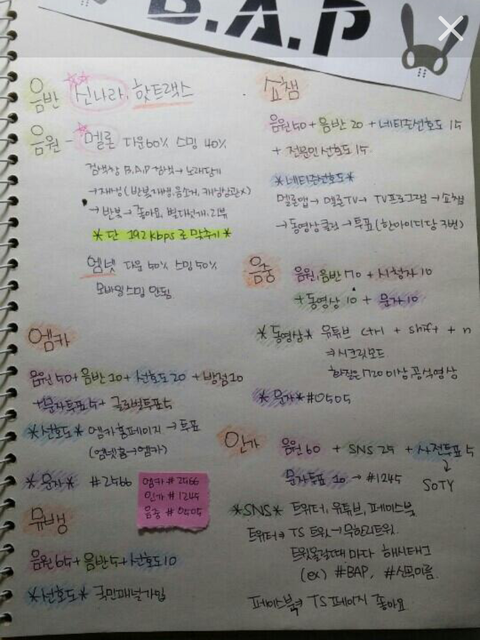 B.A.P
음반 신나라, 핫트랙스
음원 - 멜론 다운60% 스밍 40%
검색창 B.A.P 검색 → 노래담기
→ 재생 (반복재생, 음소거, 재생비관X)
→ 반복 → 좋아요, 별다섯개, 리뷰
*단 192kbps로 맞추기*
엠넷 다운 50% 스밍 50%
모바일스밍 안됨
엠카
음원50+음반10+선호도20 +방점10
+문자투표5+글로벌투표5
*선호도* 엠카홈페이지 → 투표
(엠넷홈→엠카)
*문자* #2566
엠카 #2566
인가 #1245
음중 #0505
뮤뱅
음원65+음반5+선호도10
*선호도* 국민패널가입
쇼챔
음원50+음반20+네티즌선호도 15
+ 전문인선호도 15
*네티즌선호도*
멜론앱→멜론TV→TV프로그램→쇼챔
→동영상클릭→투표 (한아이디당 3번)
음중 음원,음반 70 + 시청자10
+동영상 10 + 문자10
*동영상* 유튜브 ctrl + shift + n
⇒시크릿모드
화질은 720이상 공식영상
*문자* #0505
인가 음원60 + SNS 25 + 사전투표 5
↓
SOTY
문자투표 10 → #1245
*SNS* 트위터, 유튜브, 페이스북
트위터⇒ TS 트윗→무한리트윗
트윗올릴때마다 해시태그
(ex) #BAP, #신곡이름
페이스북⇒ TS페이지 좋아요